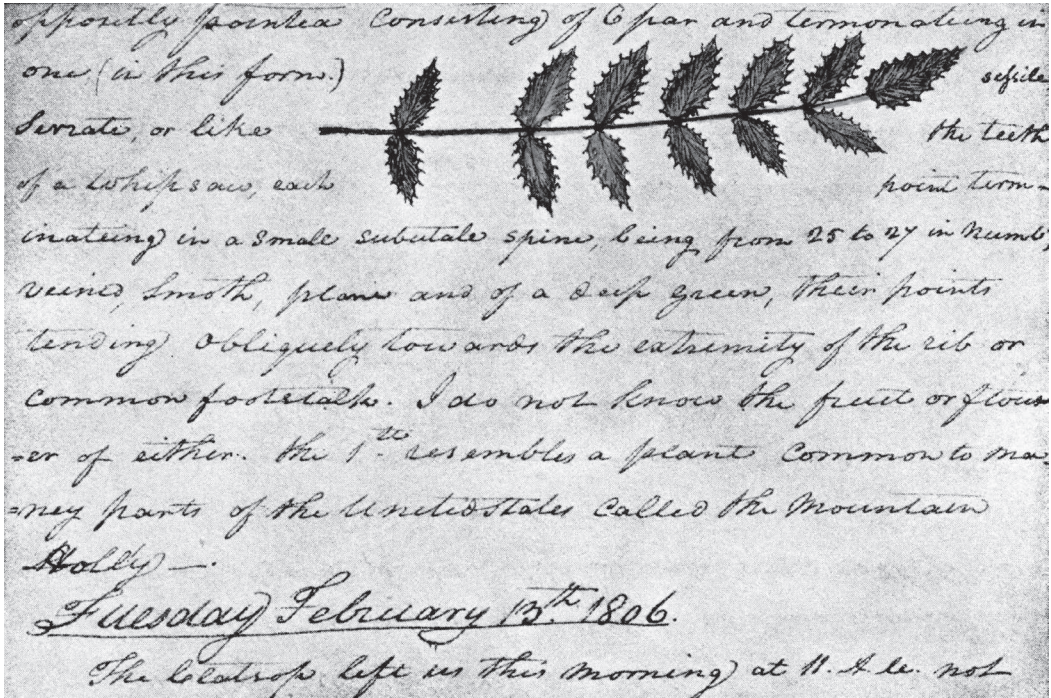 oppositly pointed consisting of 6 par and termonateing in
one (in this form.) sessile,
Serrate, or like the teeth
of a whipsaw, each point term-
inateing in a small subulate spine, being from 25 to 27 in numb,
veined, smoth, plane and of a deep green, their points
tending obliquely towards the extremity of the rib or
common footstalk. I do not know the fruit or flow
=er of either. the 1st resembles a plant common to ma
=ney parts of the United States called the Mountain
Holly —.
Tuesday February 13th 1806.
The Clatsop left us this morning at 11. A.M. not